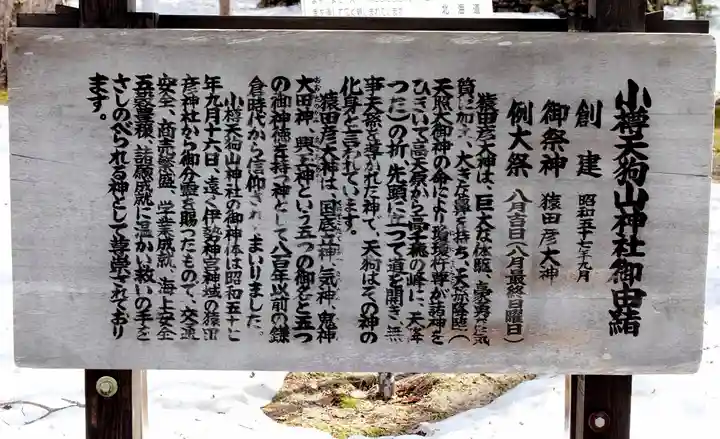 北海道
小樽天狗山神社御由緒
創建 昭和五十七年九月
御祭神 猿田彦大神
例大祭 八月吉日(八月最終日曜日)
猿田彦大神は、巨大な体軀、豪勇な気
質に加え、大きな鼻を持ち、天孫降臨(
天照大御神の命により瓊瓊杵尊が諸神を
ひきいて高天原から高千穂の峰に、天降
つた)の折、先頭に立つて道を開き、無
事天孫を導かれた神で、天狗はその神の
化身と言われています。
猿田彦大神は、国底立神、気神、鬼神
大田神、興玉神という五つの御名と五つ
の御神徳を持つ神として八百年以前の鎌
倉時代から信仰されてまいりました。
小樽天狗山神社の御神体は昭和五十七
年九月十六日、遠く伊勢神宮神域の猿田
彦神社から御分霊を賜ったもので、交通
安全、商売繁盛、学業成就、海上安全
五穀豊穣、諸願成就に温かい救いの手を
さしのべられる神として尊崇されており
ます。